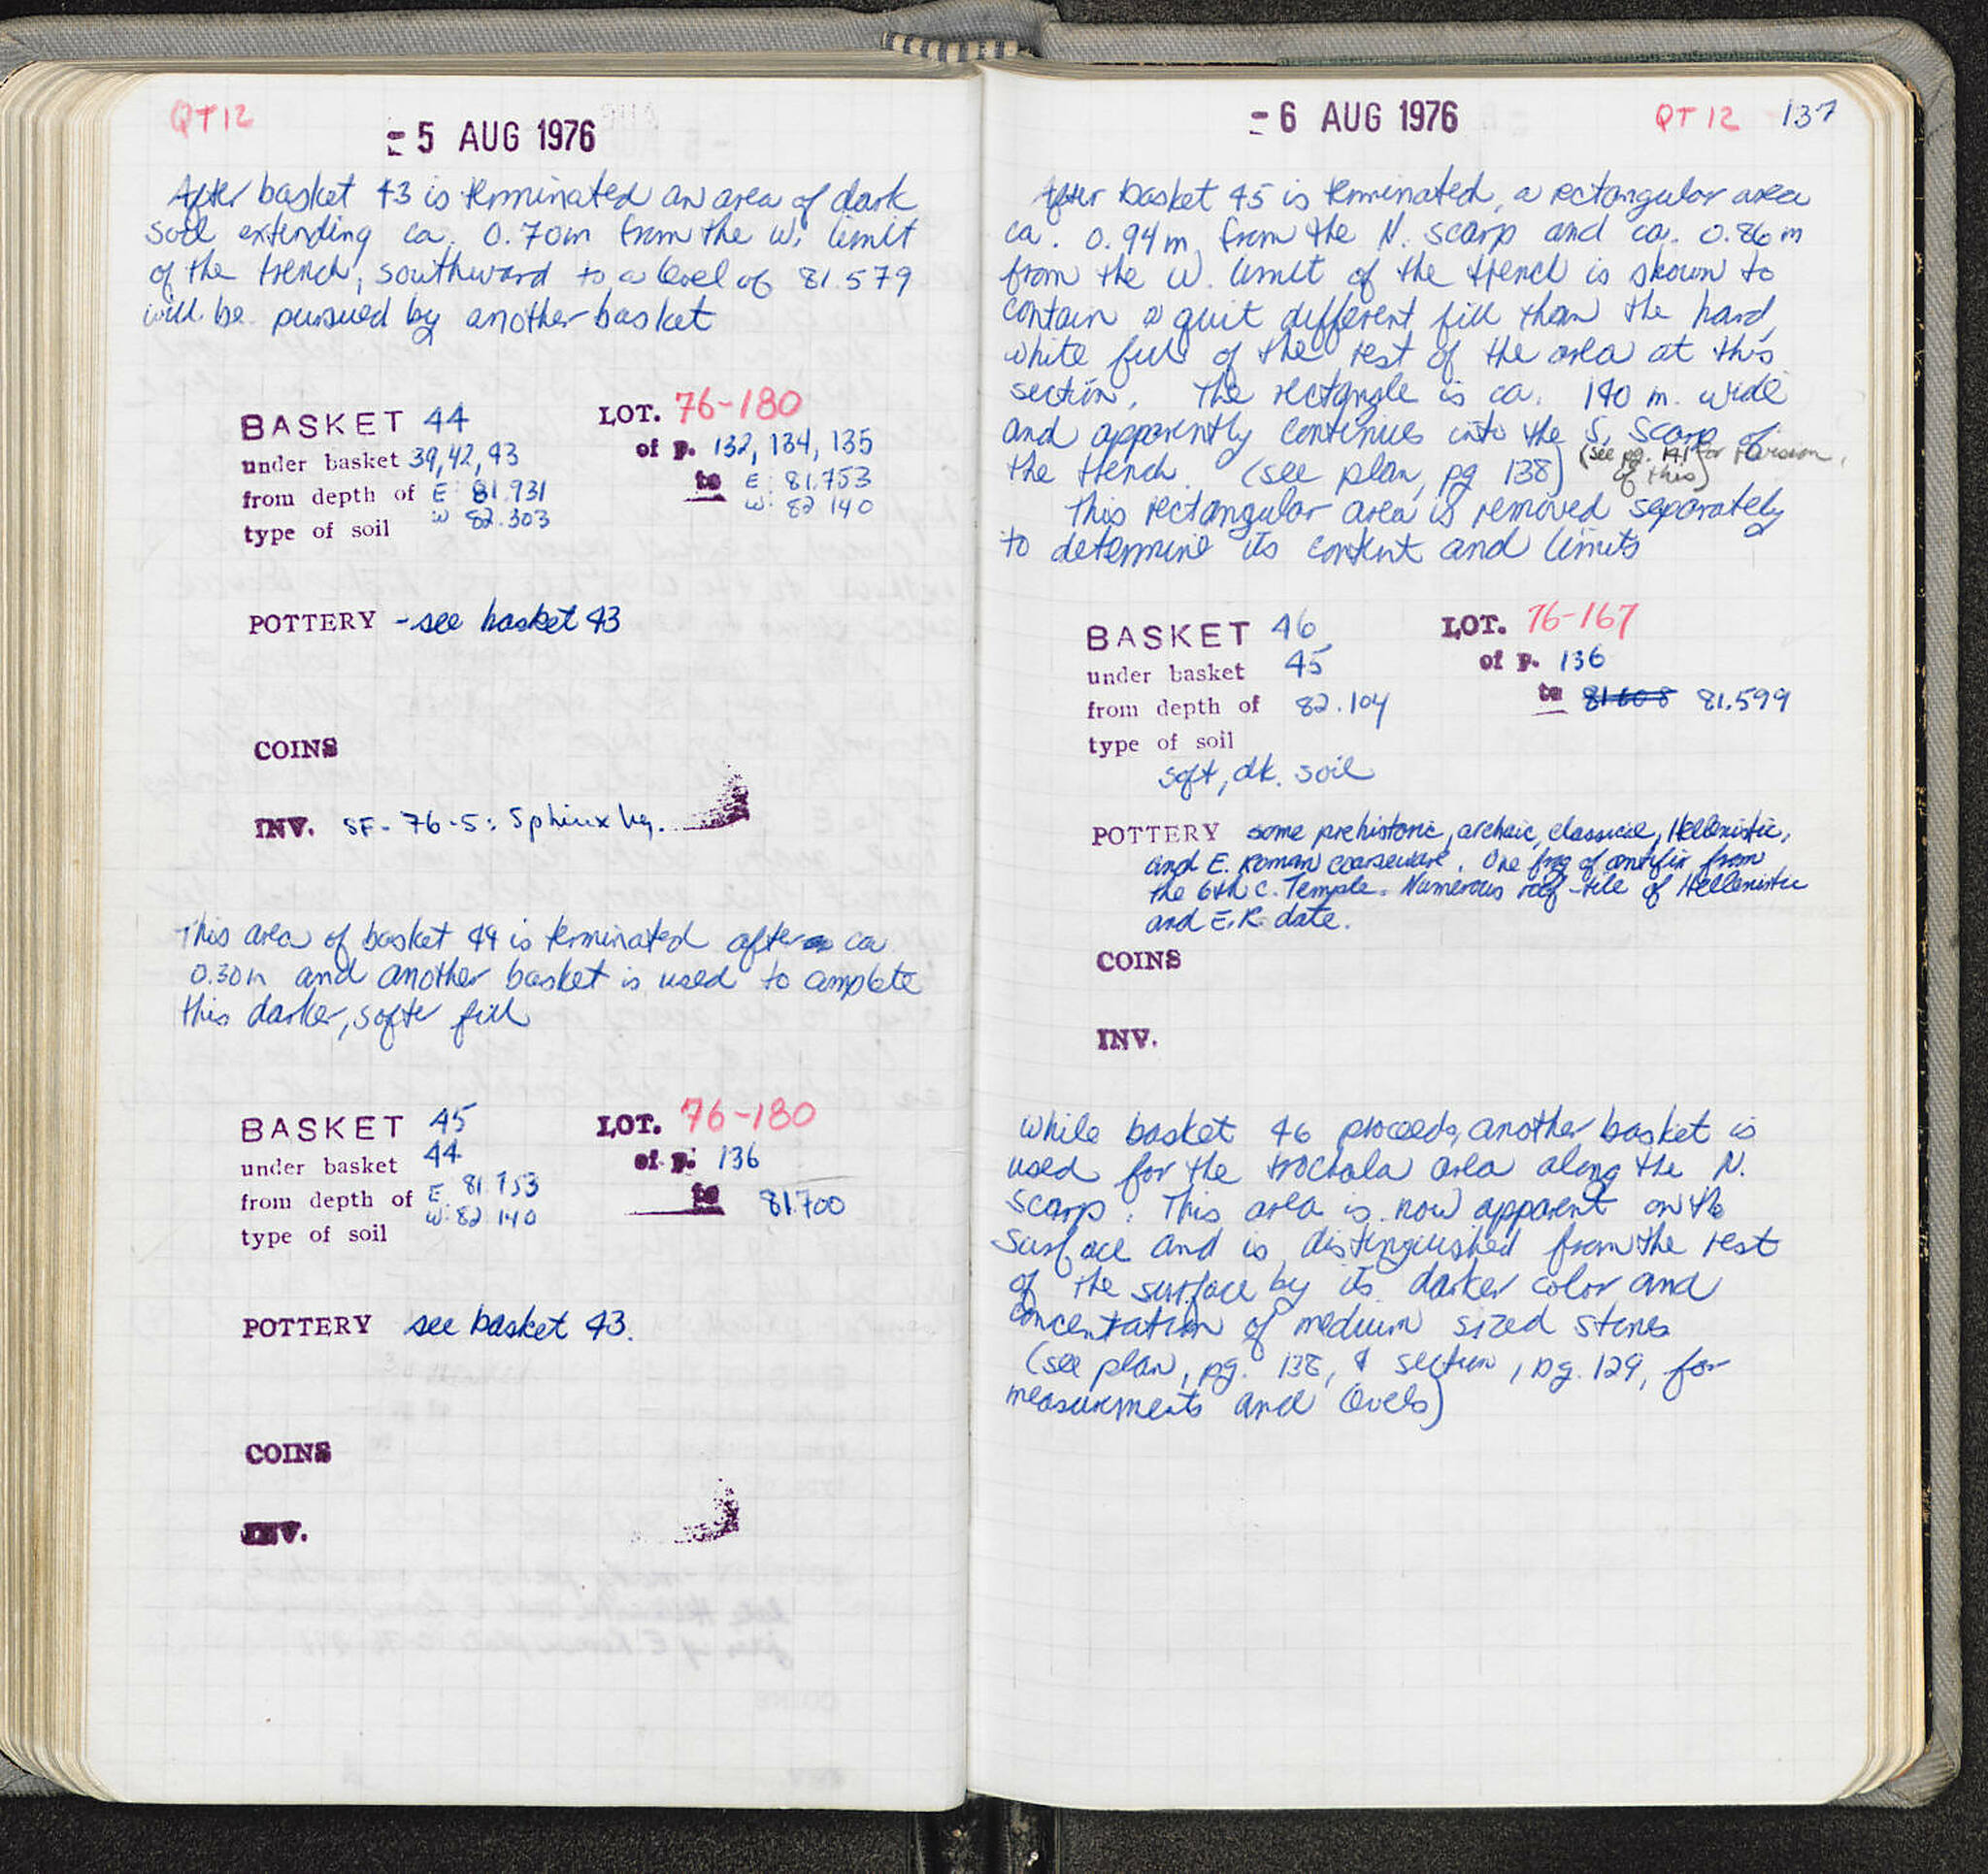 QT 12
- 5 AUG 1976
After basket 43 is terminated an area of dark
soil extending ca. 0.70m from the W. limit
of the trench, southward to a level of 81.579
will be pursued by another basket
BASKET 44 LOT. 76-180
under basket 39, 42, 43 of p. 132, 134, 135
from depth of E: 81.931 to E: 81.753
W 82.303 W: 82.140
type of soil
POTTERY - see basket 43
COINS
INV. SF-76-5: Sphinx
This area of basket 44 is terminated after ca
0.30m and another basket is used to complete
this darker, softer fill
BASKET 45 LOT. 76-180
under basket 44 of p. 136
from depth of E. 81.753 to 81.700
W: 82.140
type of soil
POTTERY see basket 43.
COINS
INV.
- 6 AUG 1976
QT 12 137
After basket 45 is terminated, a rectangular area
ca. 0.94 m from the N. scarp and ca. 0.86 m
from the W. limit of the trench is shown to
contain a quit different fill than the hard,
white fill of the rest of the area at this
section. The rectangle is ca. 140 m. wide
and apparently continues into the S. scarp of
the trench. (see plan, pg 138) (see pg. 141 for revision
of this)
This rectangular area is removed separately
to determine its content and limits
BASKET 46 LOT. 76-167
under basket 45 of p. 136
from depth of 82.104 to 81.608 81.599
type of soil
soft, dk. soil
POTTERY some prehistoric, archaic, classical, Hellenistic,
and E. Roman coarseware. One frag of antefix from
the 6th c. Temple. Numerous roof-tile of Hellenistic
and E.R. date.
COINS
INV.
While basket 46 proceeds, another basket is
used for the trochala area along the N.
scarp. This area is now apparent on the
surface and is distinguished from the rest
of the surface by its darker color and
concentration of medium sized stones
(see plan, pg. 138, & section, pg. 129, for
measurements and levels)